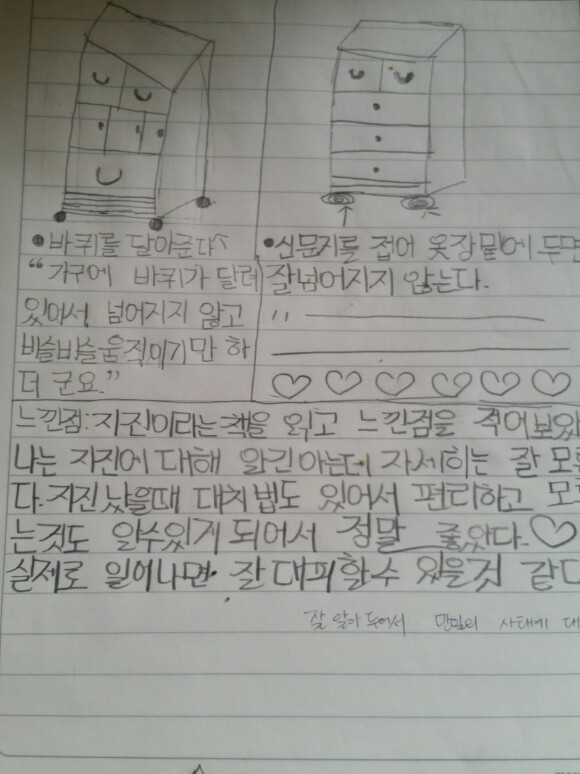 •바퀴를 달아준다
"가구에 바퀴가 달려
있어서 넘어지지 않고
비슬비슬움직이기만 하
더 군요."
•신문지를 접어 옷장밑에 두면
잘넘어지지 않는다.
"
느낀점:지진이라는책을 읽고 느낀점을 적어보았
나는 지진에 대해 알긴아는데 자세히는 잘 모
다.지진났을때 대처법도 있어서 편리하고 모
는것도 알수있게 되어서 정말 좋았다.♡
실제로 일어나면 잘대피할수 있을것 같다
잘 알아 두어서 만일의 사태에 대